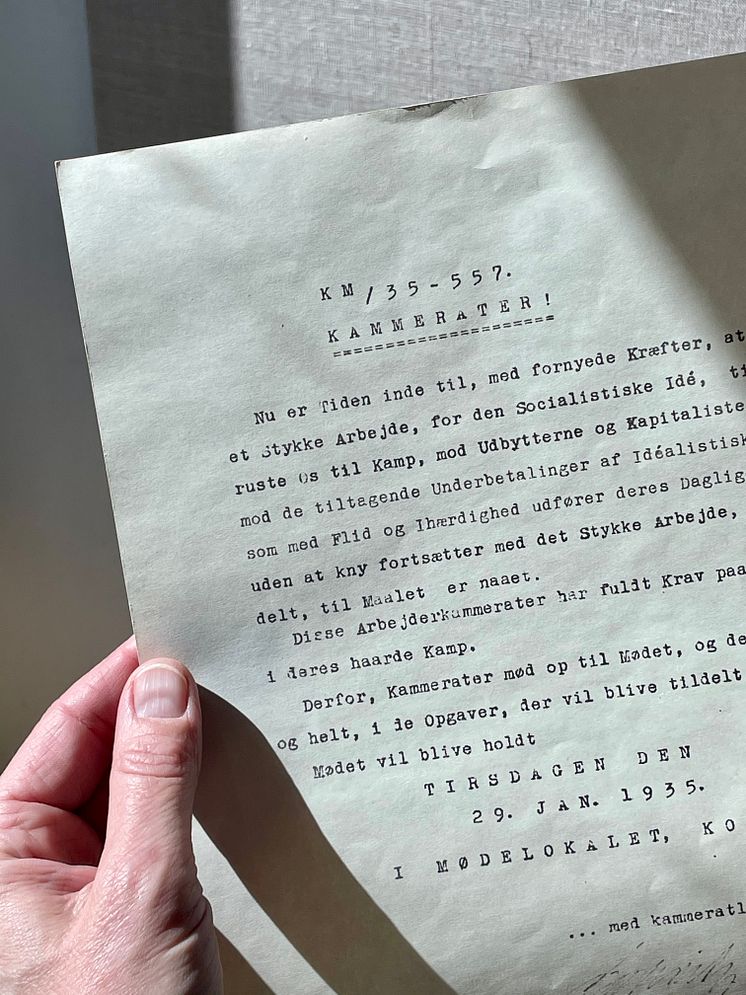 KM/35-557.
KAMMERATER!
====================
Nu er Tiden inde til, med fornyede Kræfter, at
et Stykke Arbejde, for den Socialistiske Idé, ti
ruste Os til Kamp, mod Udbytterne og Kapitaliste
mod de tiltagende Underbetalinger af Idéalistisk
som med Flid og Ihærdighed udfører deres Daglig
uden at kny fortsætter med det Stykke Arbejde,
delt, til Maalet er naaet.
Disse Arbejderkammerater har fuldt Krav paa
i deres haarde Kamp.
Derfor, Kammerater mød op til Mødet, og de
og helt, i de Opgaver, der vil blive tildelt
Mødet vil blive holdt
TIRSDAGEN DEN
29. JAN. 1935.
I MØDELOKALET, KO
... med kammeratl